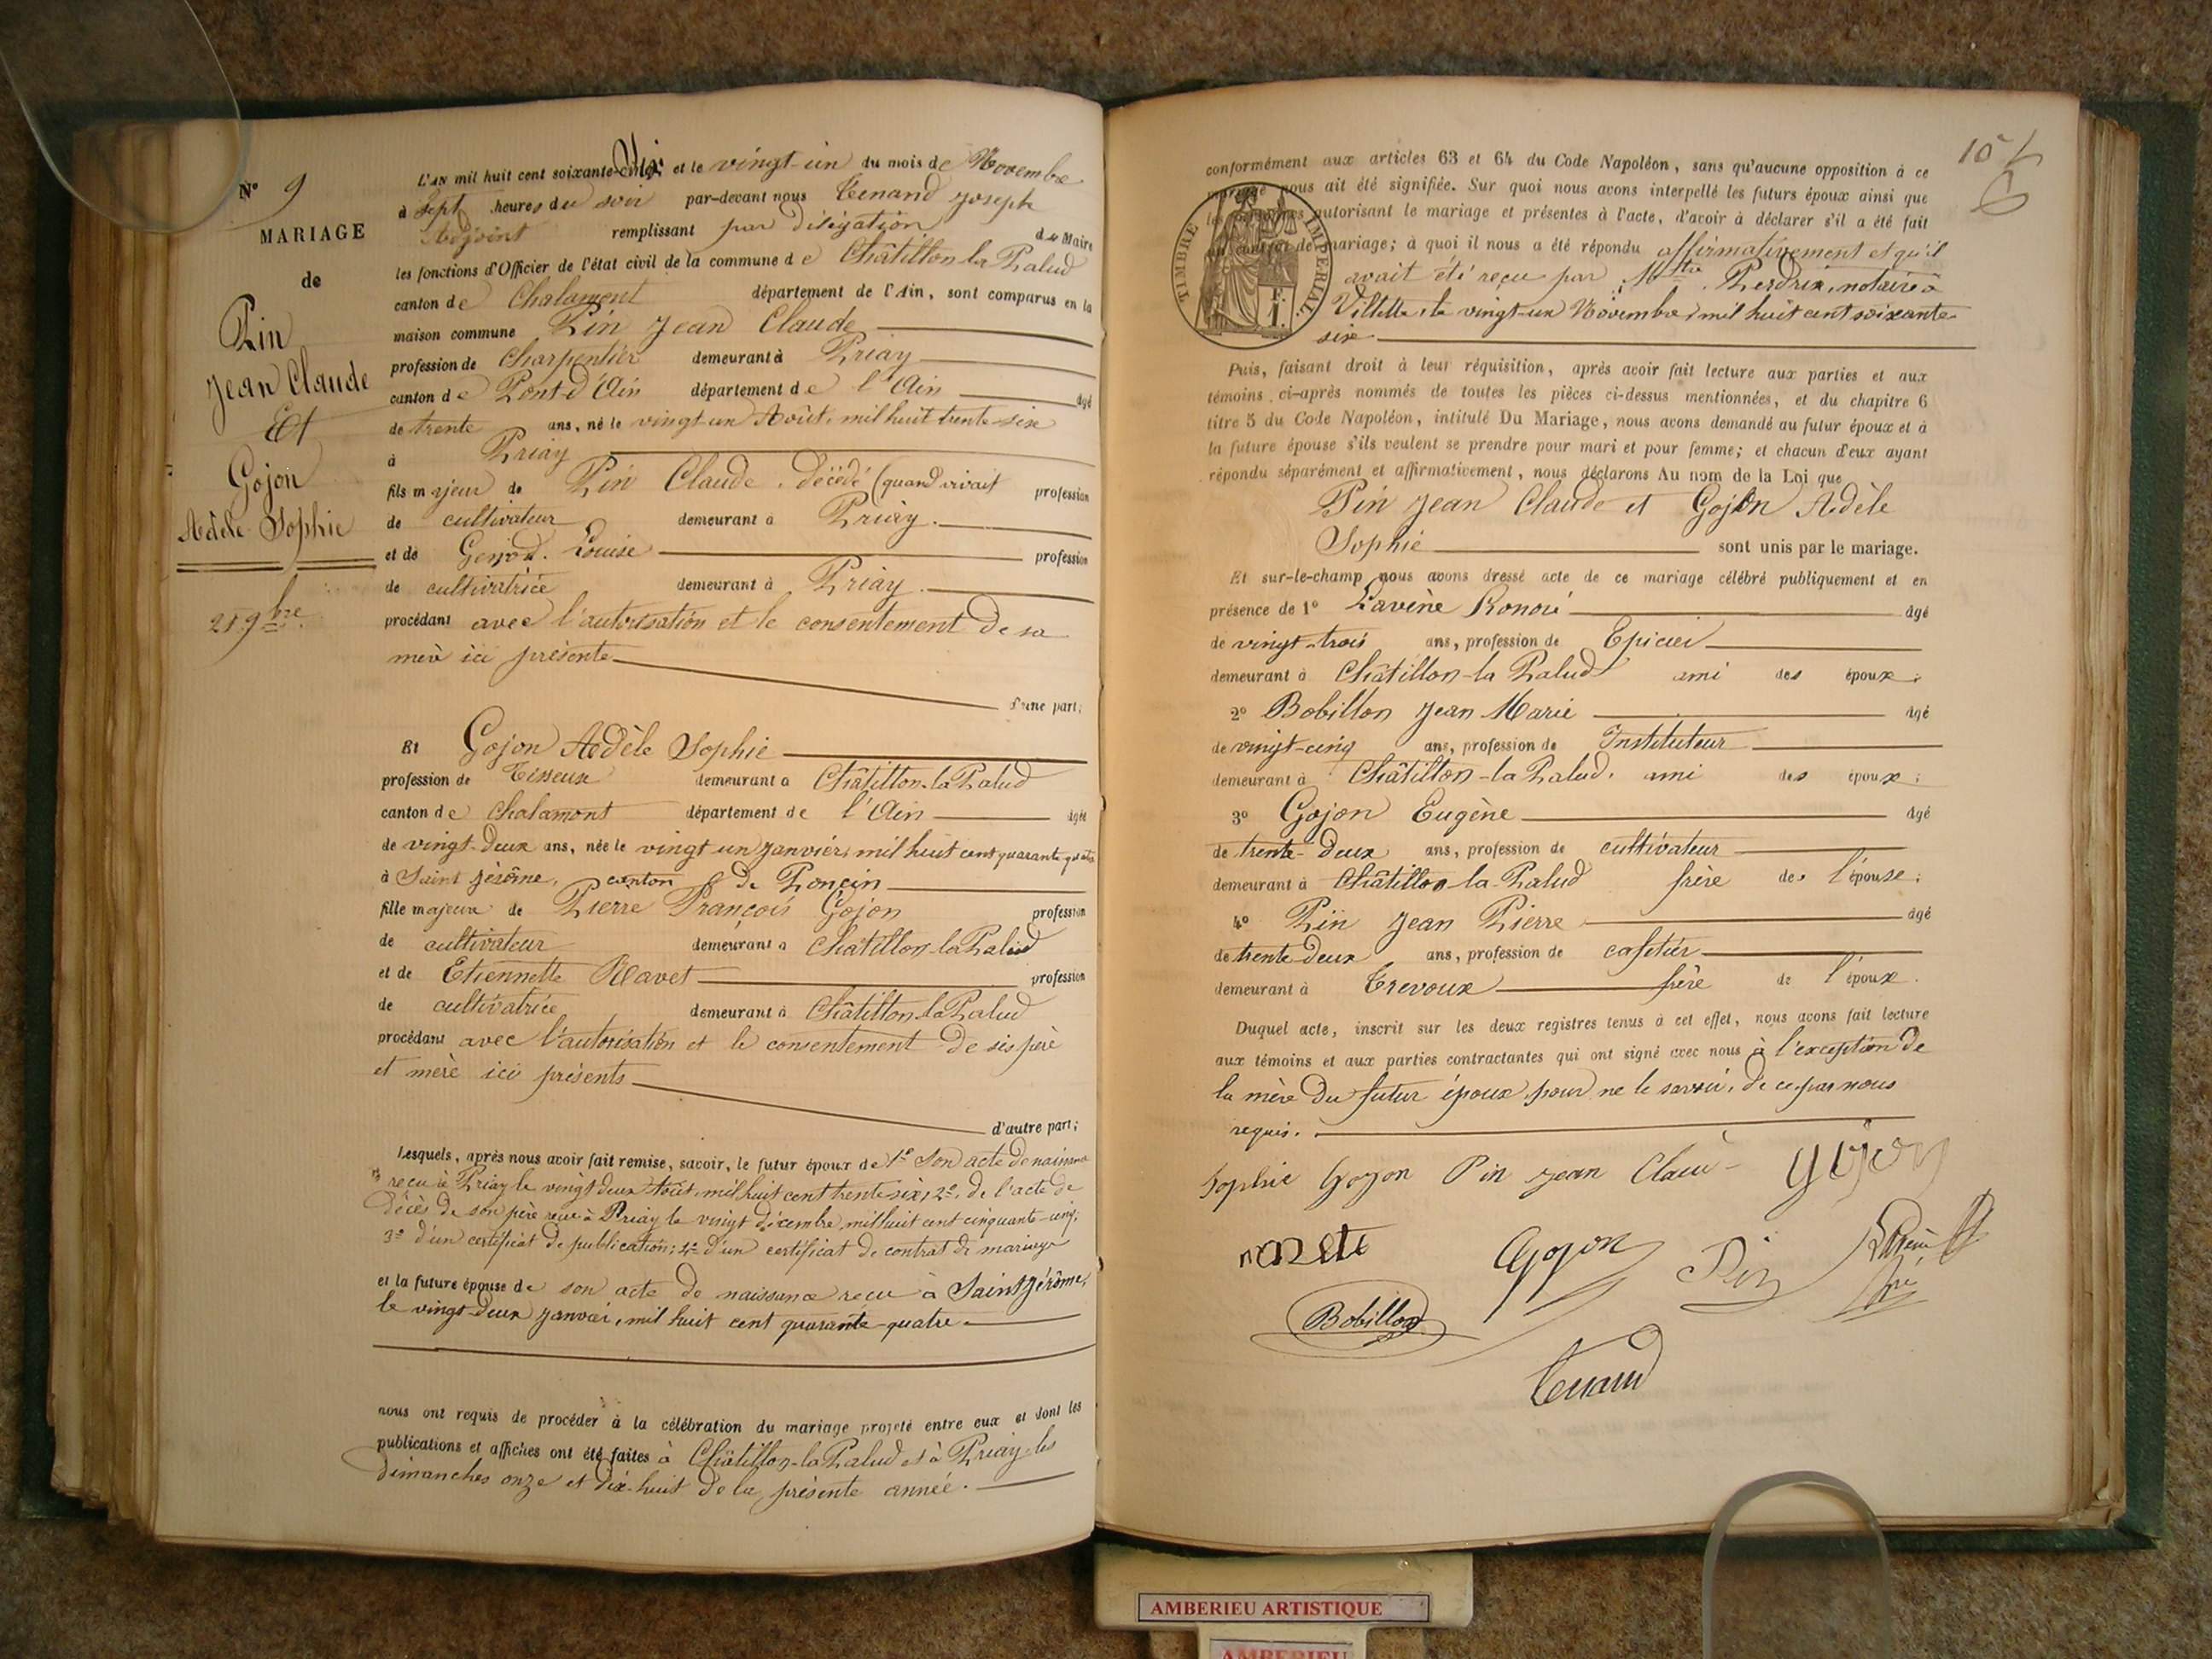 N° 9
MARIAGE
de
Pin
Jean Claude
Et
Gojon
Adèle Sophie
21 9bre
L'AN mil huit cent soixante-Six et le vingt-un du mois de Novembre
à Sept heures du soir par-devant nous Tenand Joseph
Adjoint remplissant par délégation du Maire
les fonctions d'Officier de l'état civil de la commune de Châtillon la Palud
canton de Chalamont département de l'Ain, sont comparus en la
maison commune Pin Jean Claude
profession de Charpentier demeurant à Priay
canton de Pont-d'Ain département de l'Ain âgé
de trente ans, né le vingt-un Août, mil huit trente-six
à Priay
fils majeur de Pin Claude, décédé (quand vivait profession
de cultivateur demeurant à Priay.
et de Louise profession
de cultivatrice demeurant à Priay.
procédant avec l'autorisation et le consentement de sa
mère ici présente
d'une part;
Et Gojon Adèle Sophie
profession de Tisseuse demeurant à Châtillon-la Palud
canton de Chalamont département de l'Ain âgée
de vingt-deux ans, née le vingt un Janvier, mil huit cent quarante quatre
à Saint Jérôme, canton de Poncin
fille majeure de Pierre François Gojon profession
de cultivateur demeurant à Châtillon-la Palud
et de Etiennette Ravet profession
de cultivatrice demeurant à Châtillon-la Palud
procédant avec l'autorisation et le consentement de ses père
et mère ici présents
d'autre part;
Lesquels, après nous avoir fait remise, savoir, le futur époux de 1° Son acte de naissance
reçu à Priay le vingt deux Août, mil huit cent trente six, 2°, de l'acte de
décès de son père reçu à Priay le vingt décembre, mil huit cent cinquante-cinq;
3° d'un certificat de publication; 4° d'un certificat de contrat de mariage
et la future épouse de son acte de naissance reçu à Saint Jérôme,
le vingt-deux Janvier, mil huit cent quarante-quatre
nous ont requis de procéder à la célébration du mariage projeté entre eux et dont les
publications et affiches ont été faites à Châtillon-la Palud et à Priay les
dimanches onze et dix-huit de la présente année.
10
conformément aux articles 63 et 64 du Code Napoléon, sans qu'aucune opposition à ce
mariage nous ait été signifiée. Sur quoi nous avons interpellé les futurs époux ainsi que
les personnes autorisant le mariage et présentes à l'acte, d'avoir à déclarer s'il a été fait
un contrat de mariage; à quoi il nous a été répondu affirmativement et qu'il
avait été reçu par Perdrix, notaire à
Villette, le vingt-un Novembre, mil huit cent soixante
six
TIMBRE IMPÉRIAL
F.
1.
Puis, faisant droit à leur réquisition, après avoir fait lecture aux parties et aux
témoins ci-après nommés de toutes les pièces ci-dessus mentionnées, et du chapitre 6
titre 5 du Code Napoléon, intitulé Du Mariage, nous avons demandé au futur époux et à
la future épouse s'ils veulent se prendre pour mari et pour femme; et chacun d'eux ayant
répondu séparément et affirmativement, nous déclarons Au nom de la Loi que
Pin Jean Claude et Gojon Adèle
Sophie sont unis par le mariage.
Et sur-le-champ nous avons dressé acte de ce mariage célébré publiquement et en
présence de 1° Honoré âgé
de vingt-trois ans, profession de Epicier
demeurant à Châtillon-la Palud ami des époux;
2° Bobillon Jean Marie âgé
de vingt-cinq ans, profession de Instituteur
demeurant à Châtillon-la Palud, ami des époux;
3° Gojon Eugène âgé
de trente-deux ans, profession de cultivateur
demeurant à Châtillon-la-Palud frère de l'épouse;
4° Pin Jean Pierre âgé
de trente deux ans, profession de cafetier
demeurant à Trevoux frère de l'époux.
Duquel acte, inscrit sur les deux registres tenus à cet effet, nous avons fait lecture
aux témoins et aux parties contractantes qui ont signé avec nous à l'exception de
la mère du futur époux, pour ne le savoir, de ce par nous
requis.
Sophie Gojon Pin Jean Claude Gojon
Gojon Pin
Bobillon
Tenand
AMBERIEU ARTISTIQUE
AMBERIEU